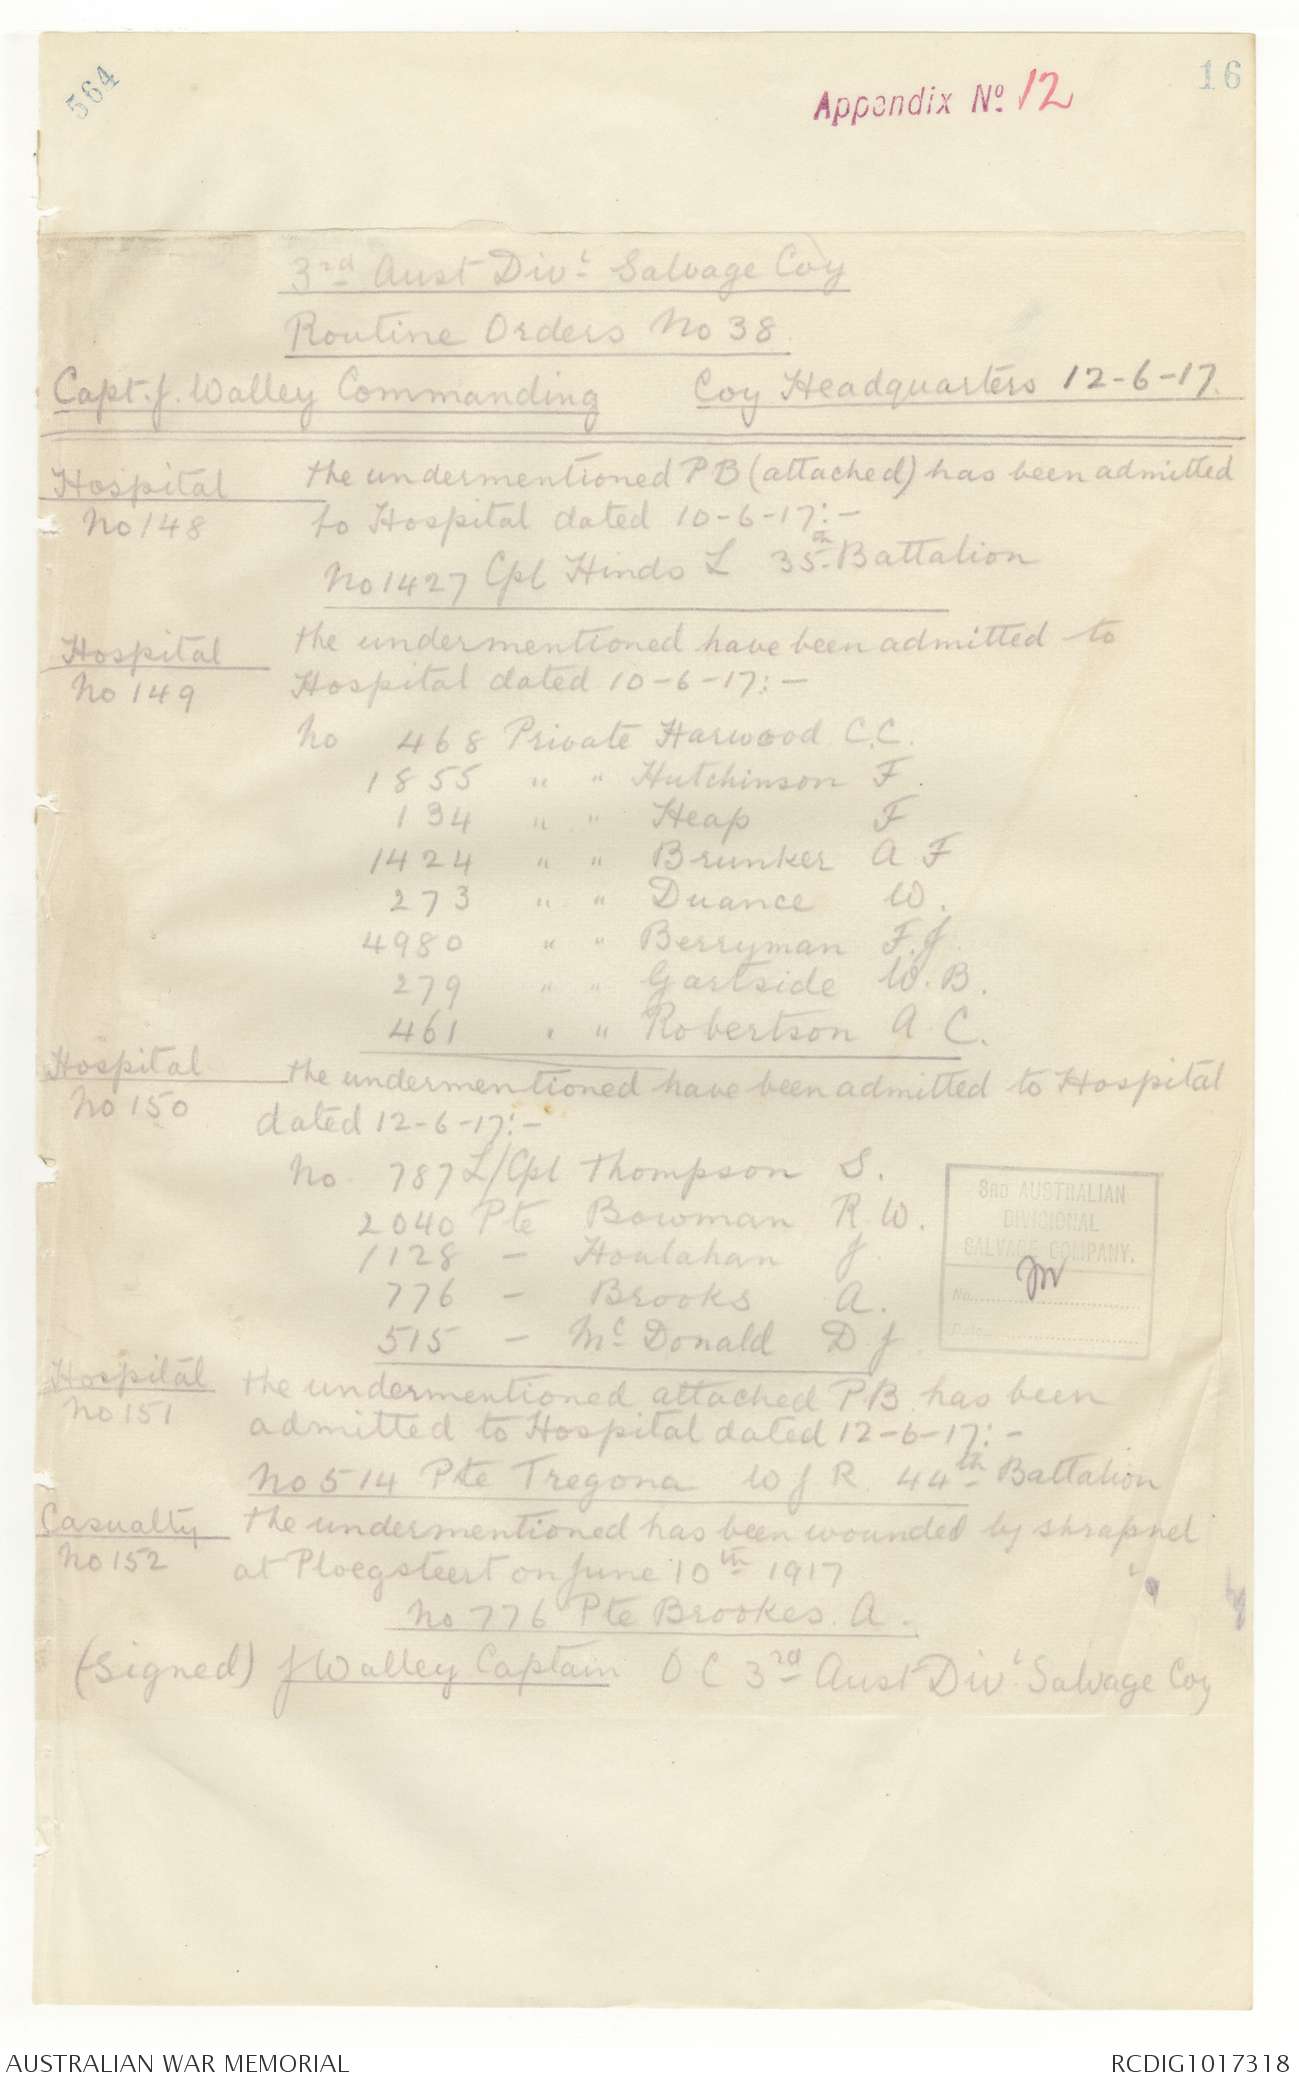 564
Appendix No 12
16
3rd Aust Divl Salvage Coy
Routine Orders No 38.
Capt. J. Walley Commanding Coy Headquarters 12-6-17.
Hospital No 148
the undermentioned PB (attached) has been admitted
to Hospital dated 10-6-17:-
No 1427 Cpl Hinds L 35th Battalion
Hospital No 149
the undermentioned have been admitted to
Hospital dated 10-6-17:-
No 468 Private Harwood C.C.
1855 " " Hutchinson F.
134 " " Heap F
1424 " " Brunker A F
273 " " Duance W.
4980 " " Berryman F.J.
279 " " Gartside W.B.
461 " " Robertson A C.
Hospital No 150
the undermentioned have been admitted to Hospital
dated 12-6-17:-
No 787 L/Cpl Thompson S.
2040 Pte Bowman R.W.
1128 - Houlahan J.
776 - Brooks A.
515 - McDonald D J
3RD AUSTRALIAN
DIVISIONAL
SALVAGE COMPANY.
No.
Date
Hospital No 151
the undermentioned attached PB. has been
admitted to Hospital dated 12-6-17:-
No 514 Pte Tregona W J R. 44th Battalion
Casualty No 152
the undermentioned has been wounded by shrapnel
at Ploegsteert on June 10th 1917
No 776 Pte Brookes. A.
(Signed) J Walley Captain O C 3rd Aust Divl Salvage Coy
AUSTRALIAN WAR MEMORIAL
RCDIG1017318